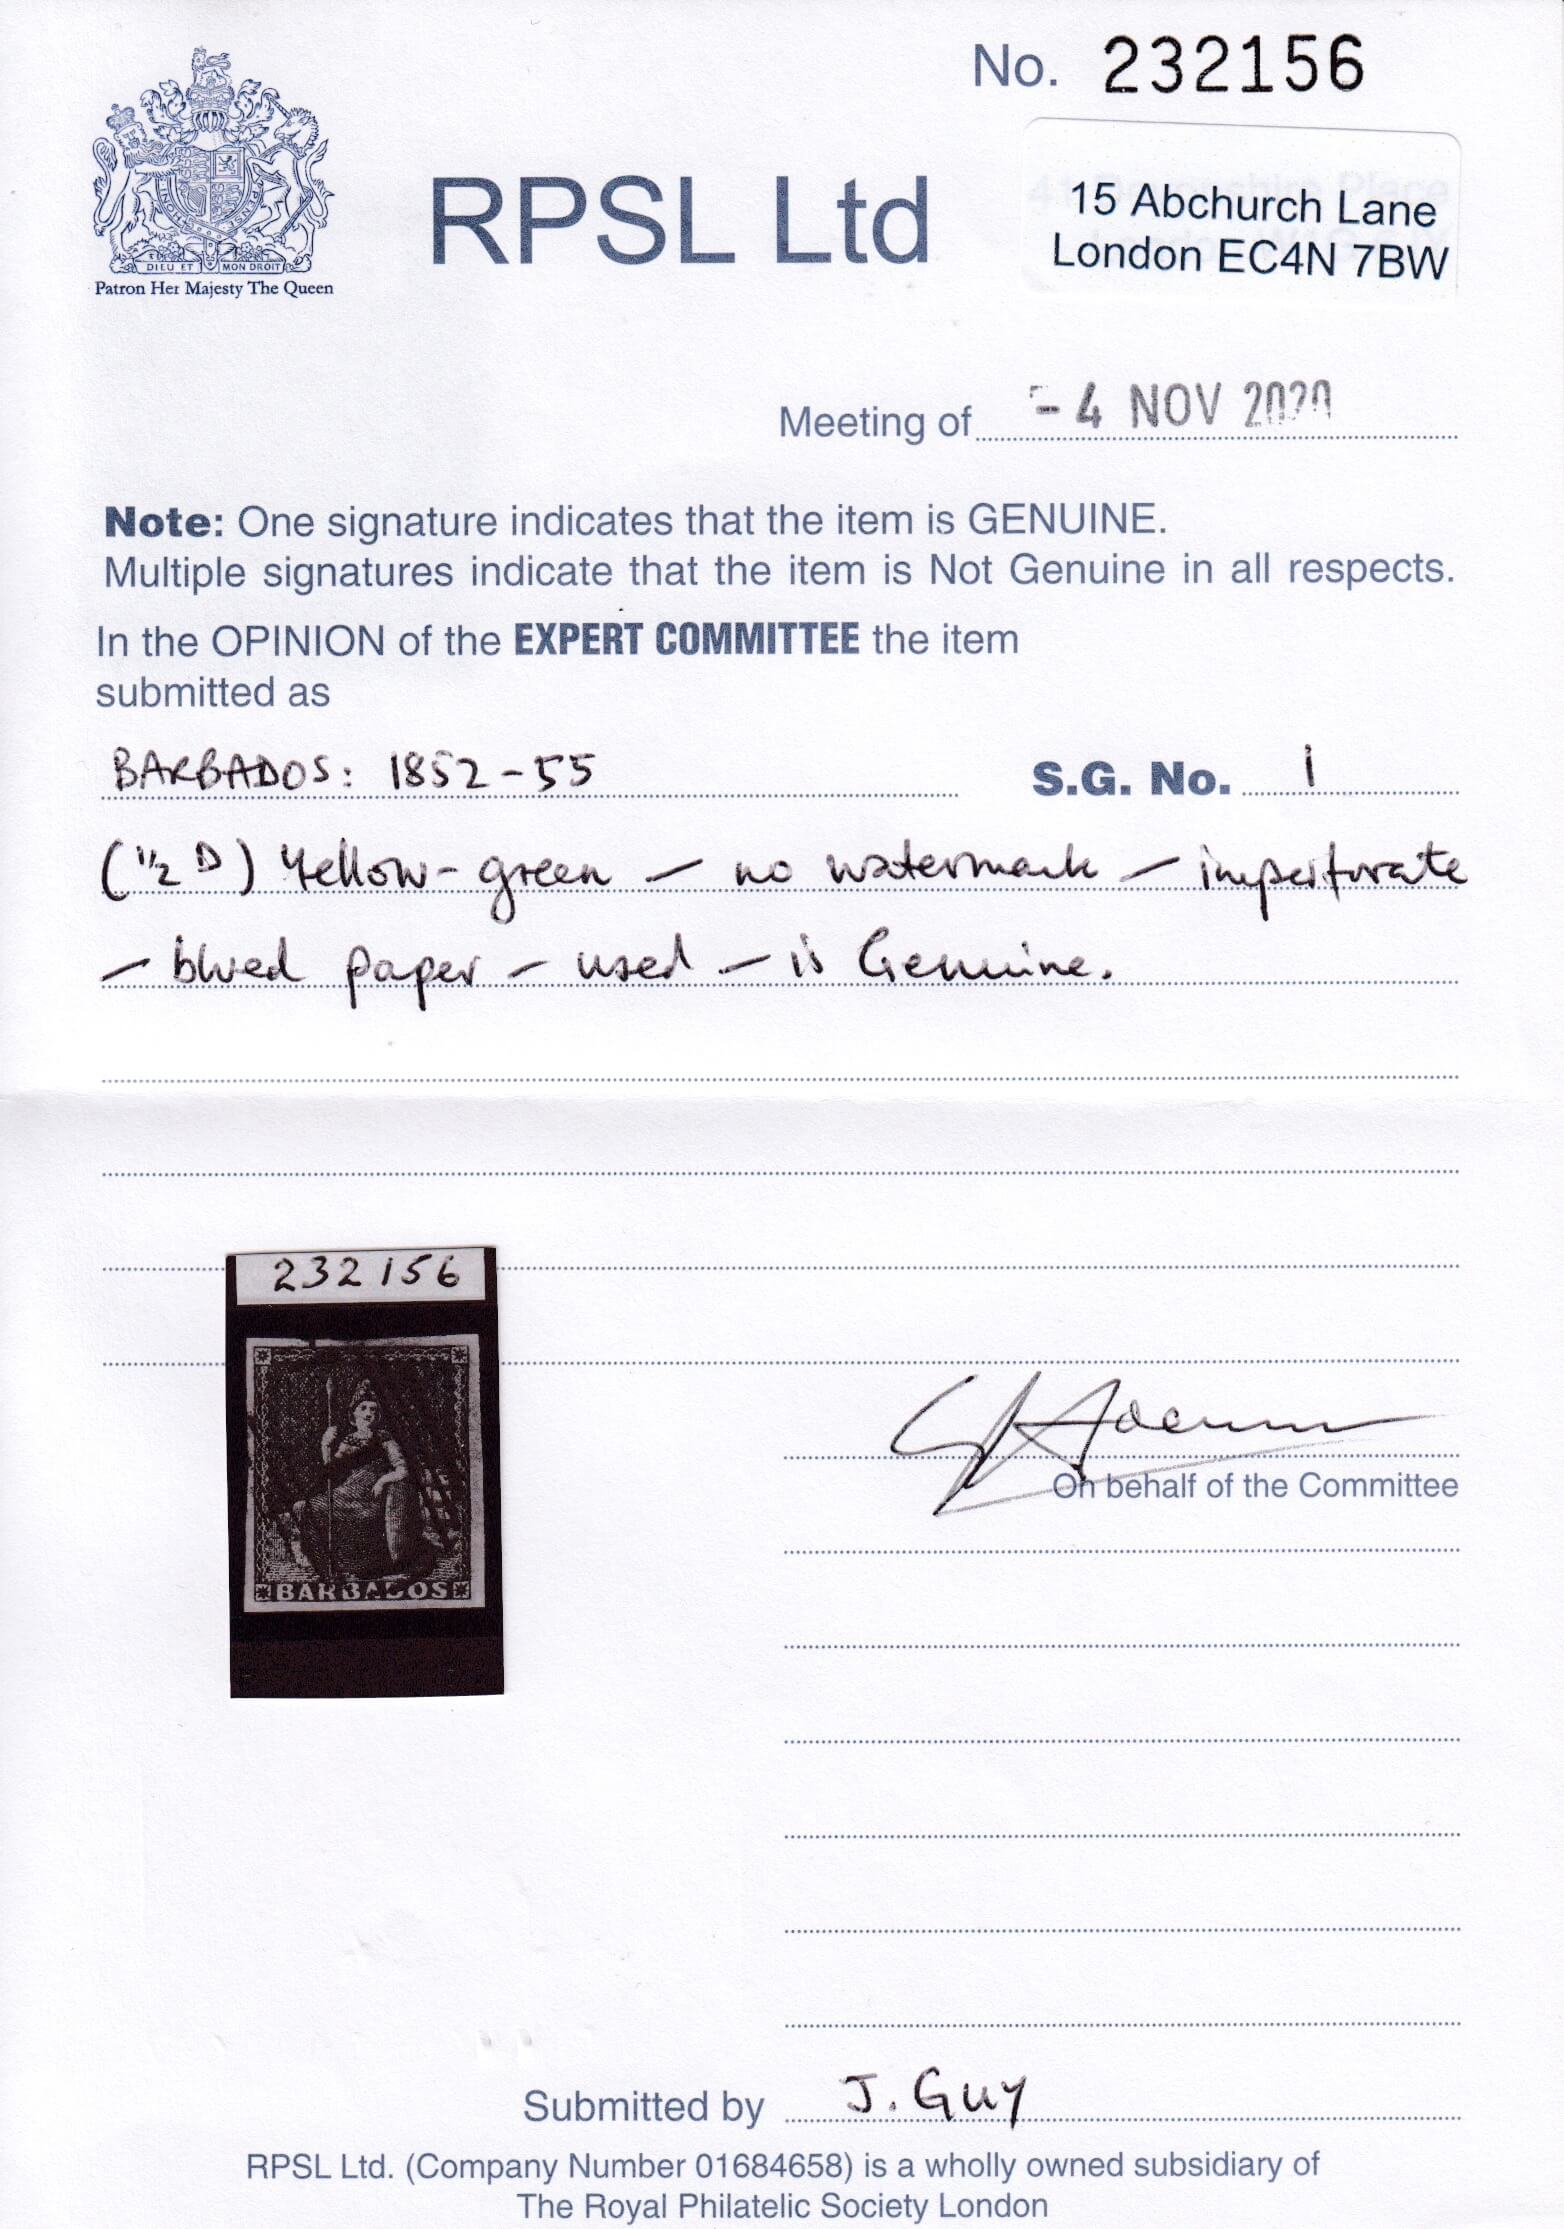 No. 232156
RPSL Ltd
15 Abchurch Lane
London EC4N 7BW
DIEU ET MON DROIT
Patron Her Majesty The Queen
Meeting of - 4 NOV 2020
Note: One signature indicates that the item is GENUINE.
Multiple signatures indicate that the item is Not Genuine in all respects.
In the OPINION of the EXPERT COMMITTEE the item
submitted as
BARBADOS: 1852-55 S.G. No. 1
(½D) Yellow-green - no watermark - imperforate
- blued paper - used - is Genuine.
232156
BARBADOS
On behalf of the Committee
Submitted by J. GUY
RPSL Ltd. (Company Number 01684658) is a wholly owned subsidiary of
The Royal Philatelic Society London